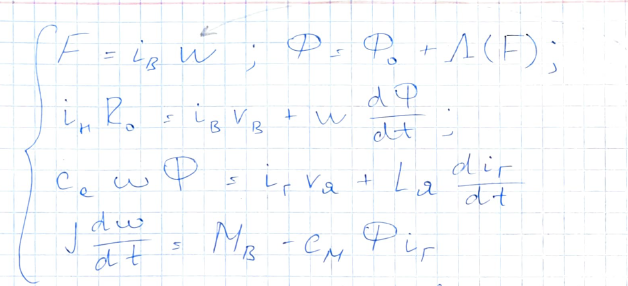 F = i_B W ; Φ = Φ_0 + Λ(F) ;
i_н R_0 = i_B r_B + w dΦ/dt ;
c_e ω Φ = i_г r_я + L_я di_г/dt
J dω/dt = M_B - c_M Φ i_г